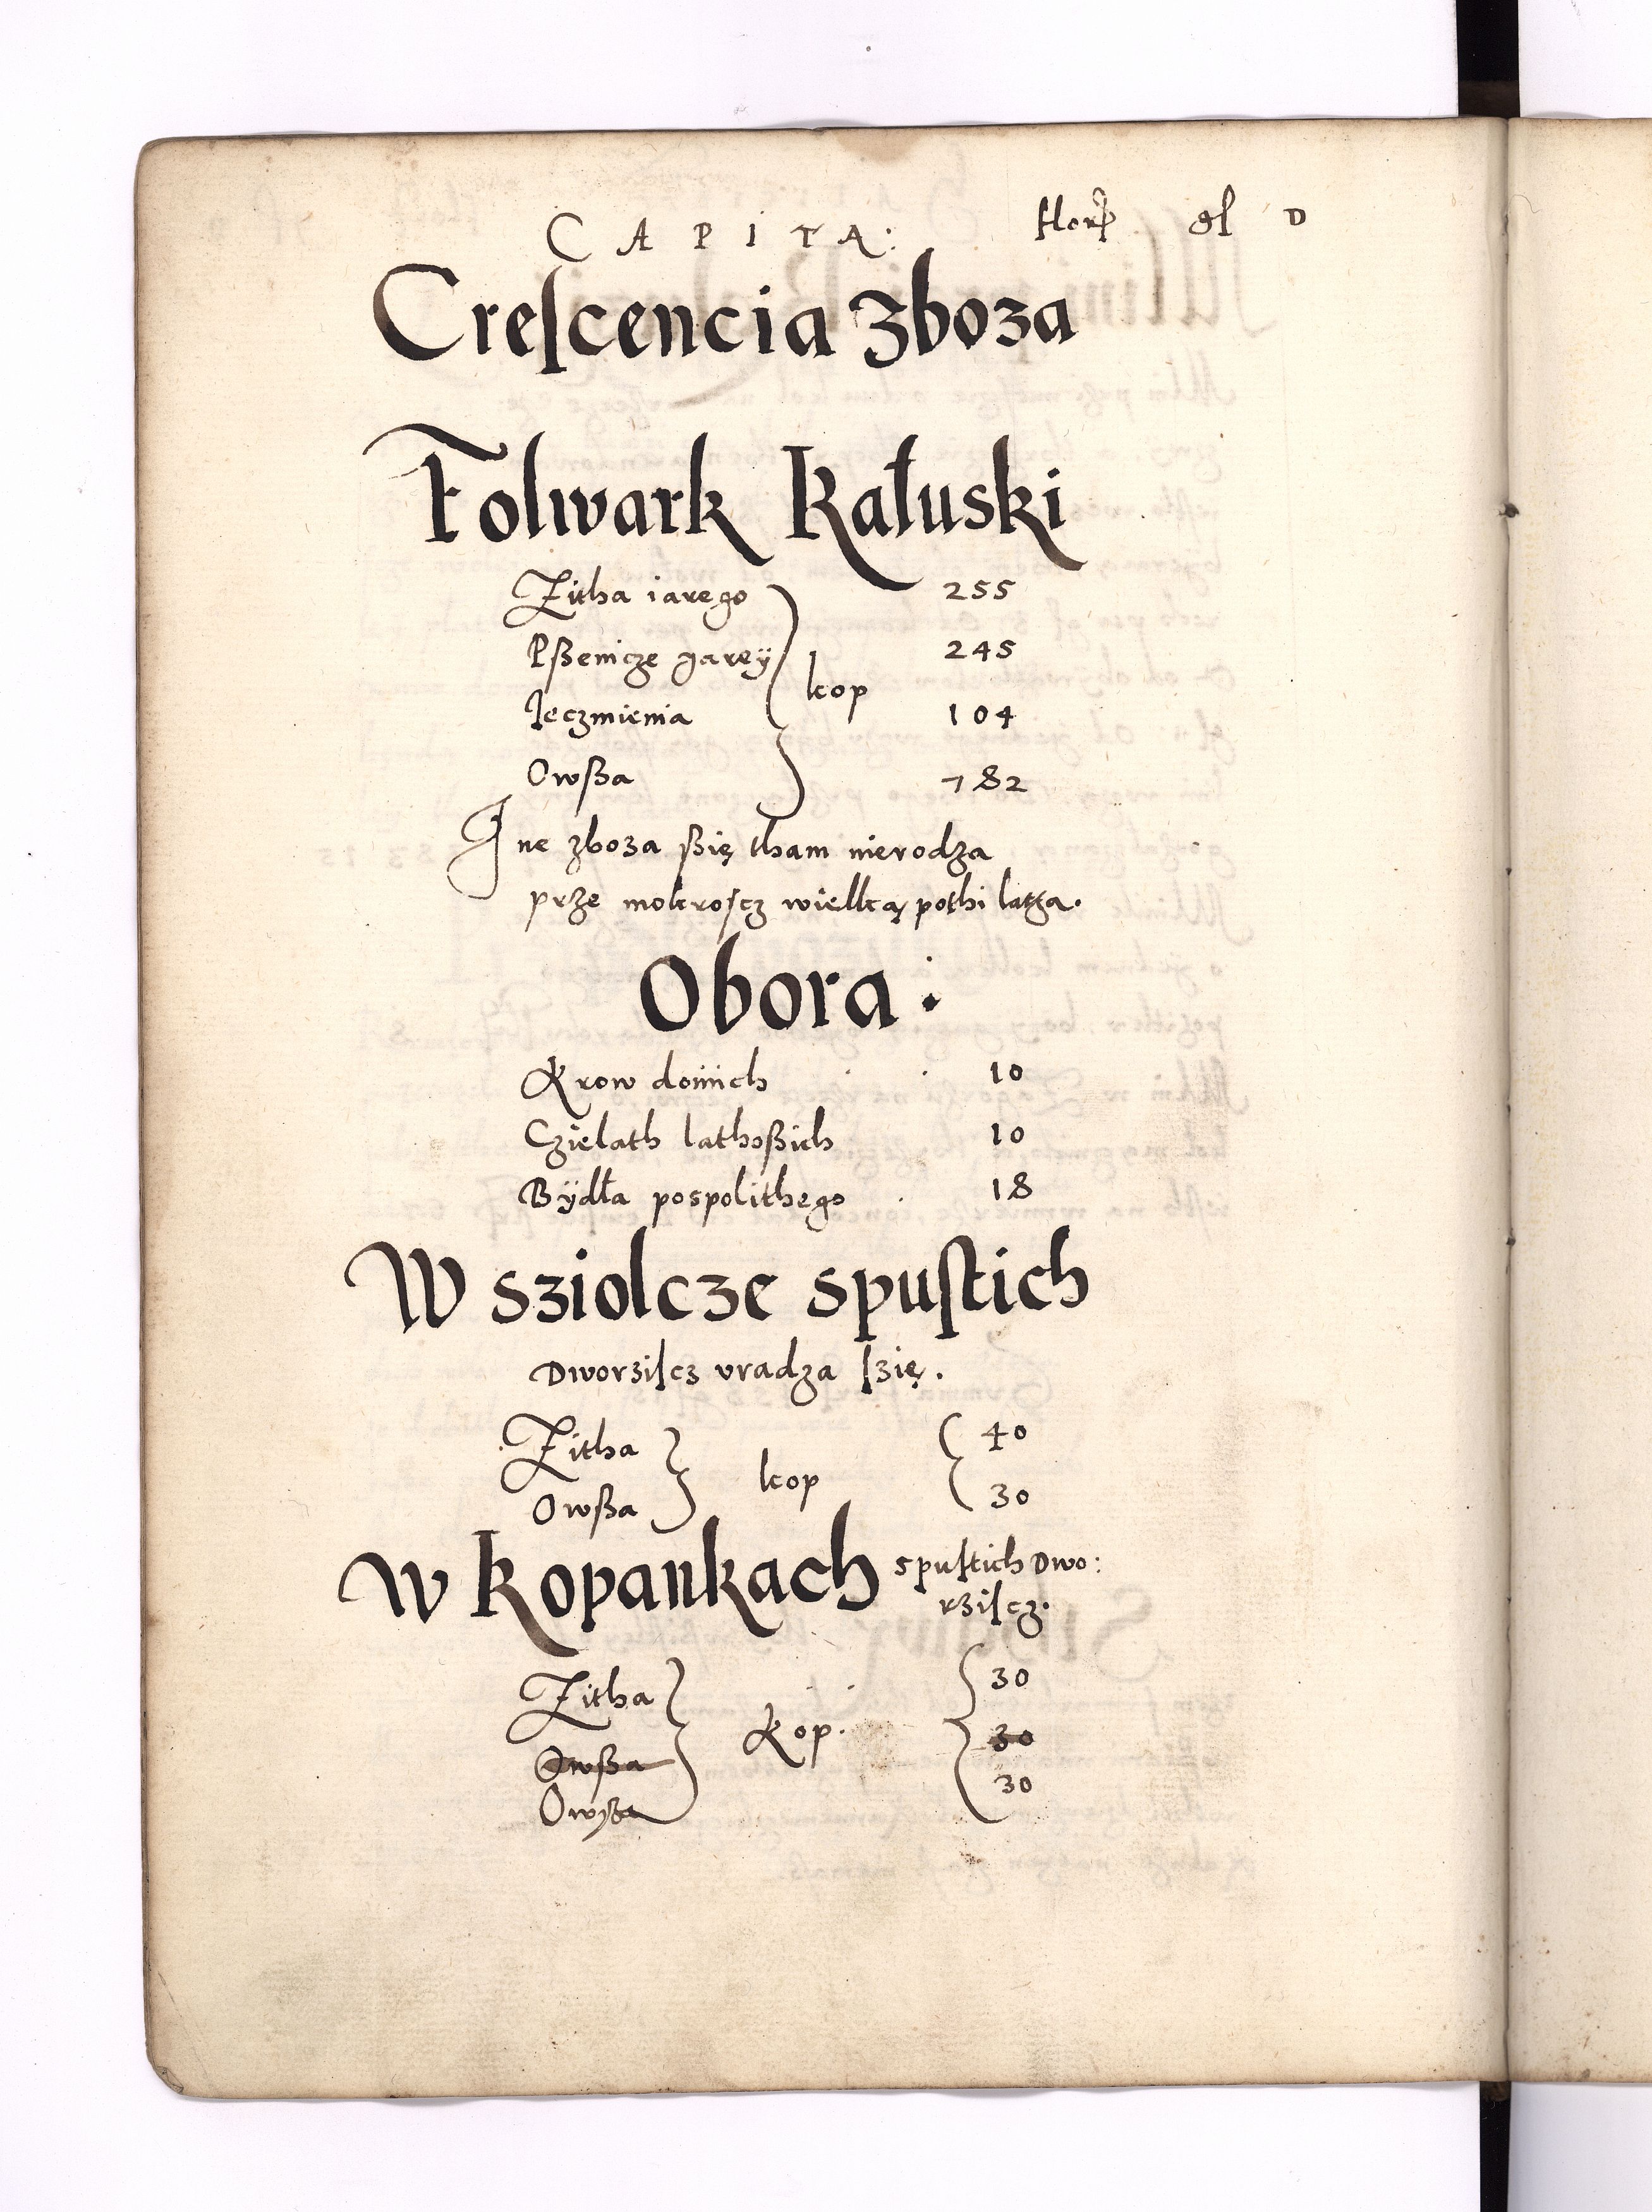 CAPITA: flor gl D
Creſcencia Zboza
Folwark Kałuski
Zitha iarego 255
Pßenicze garey 245
kop
Jeczmienia 104
Owßa 782
Jne zboza ßię tham nierodza
prze mokroſcz wielką pothi latha.
Obora:
Krow doinich 10
Czielath lathoßich 10
Bÿdła pospolithego 18
W sziolcze spuſtich
Dworziſcz vradza ſzię.
Zitha 40
kop
Owßa 30
W Kopankach spuſtich Dwo:
rziſcz.
Zitha 30
Kop.
Owßa 30
Owsza 30